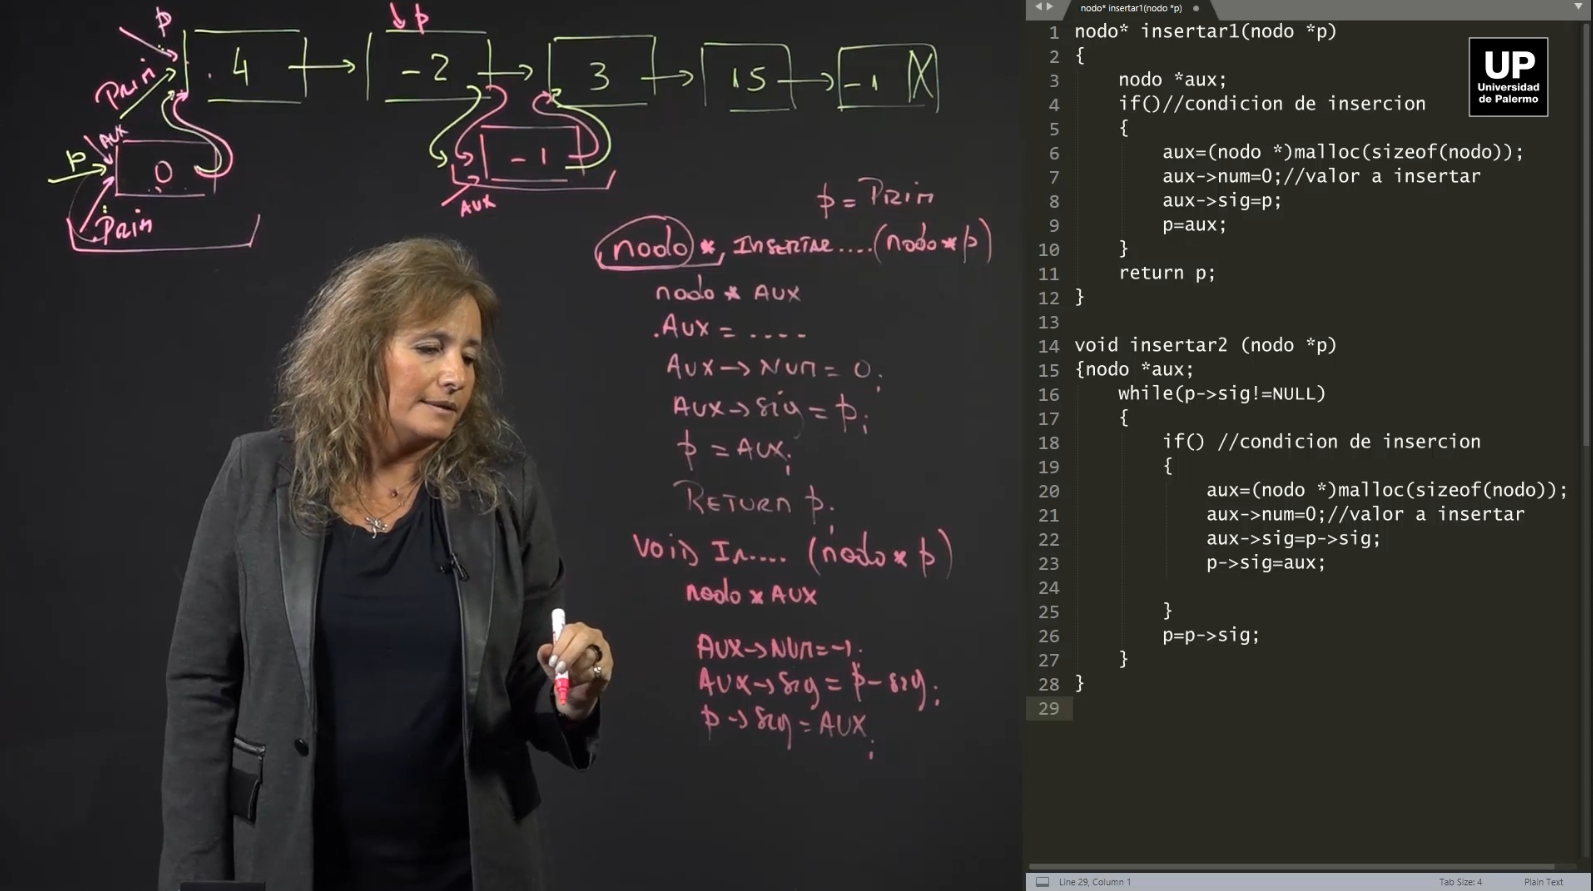 p
p
4
-2
3
15
-1
Prin
AUX
p
0
-1
Prin
AUX
p = Prin
nodo *, INSERTAR.....(nodo * p)
nodo * AUX
.AUX = ....
AUX → NUM = 0;
AUX → sig = p;
p = AUX;
RETURN p;
VOID In.... (nodo * p)
nodo * AUX
AUX → NUM = -1.
AUX → sig = p - sig;
p → sig = AUX;
nodo* insertar1(nodo *p)
1 nodo* insertar1(nodo *p)
2 {
3 nodo *aux;
4 if()//condicion de insercion
5 {
6 aux=(nodo *)malloc(sizeof(nodo));
7 aux->num=0;//valor a insertar
8 aux->sig=p;
9 p=aux;
10 }
11 return p;
12 }
13
14 void insertar2 (nodo *p)
15 {nodo *aux;
16 while(p->sig!=NULL)
17 {
18 if() //condicion de insercion
19 {
20 aux=(nodo *)malloc(sizeof(nodo));
21 aux->num=0;//valor a insertar
22 aux->sig=p->sig;
23 p->sig=aux;
24
25 }
26 p=p->sig;
27 }
28 }
29
UP
Universidad
de Palermo
Line 29, Column 1
Tab Size: 4
Plain Text